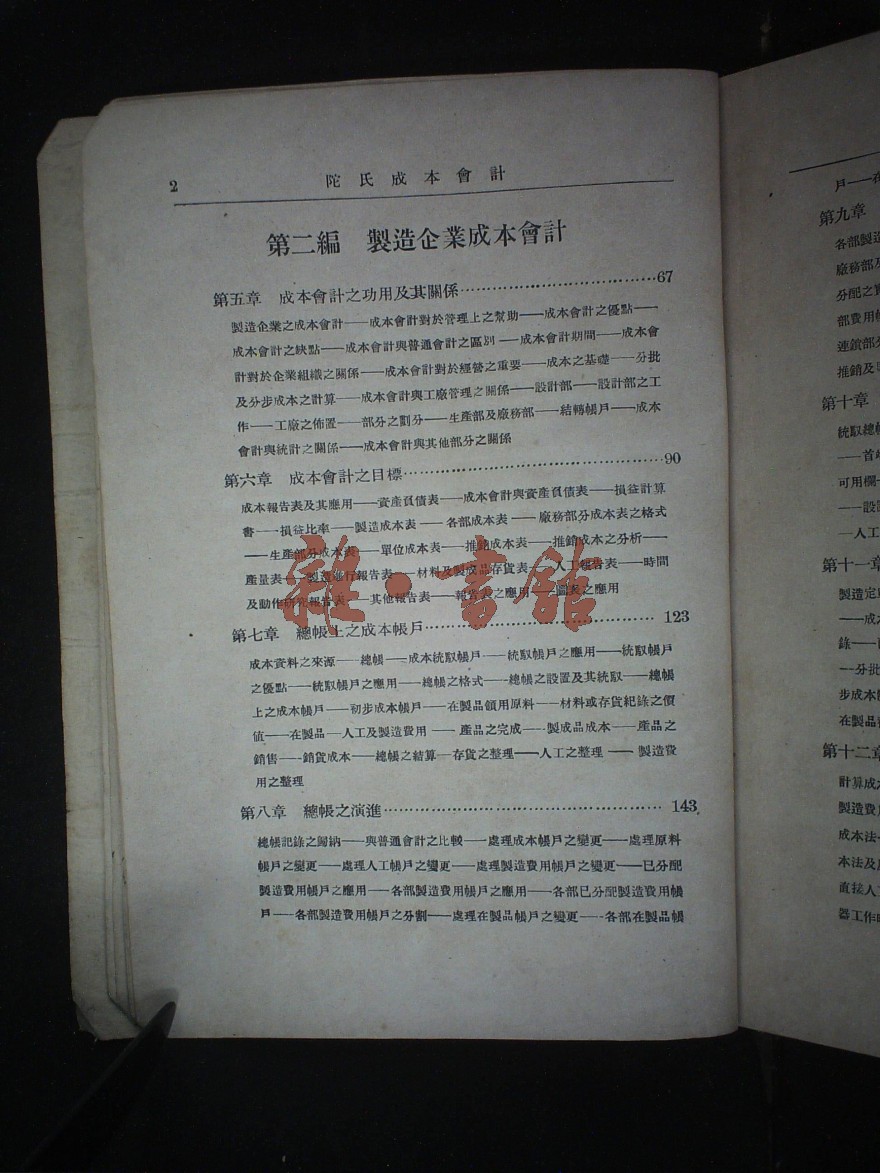 2
陀氏成本會計
第二編 製造企業成本會計
第五章 成本會計之功用及其關係……………………………67
製造企業之成本會計——成本會計對於管理上之幫助——成本會計之優點——
成本會計之缺點——成本會計與普通會計之區別——成本會計期間——成本會
計對於企業組織之關係——成本會計對於經營之重要——成本之基礎——分批
及分步成本之計算——成本會計與工廠管理之關係——設計部——設計部之工
作——工廠之佈置——部分之劃分——生產部及廠務部——結轉帳戶——成本
會計與統計之關係——成本會計與其他部分之關係
第六章 成本會計之目標……………………………90
成本報告表及其應用——資產負債表——成本會計與資產負債表——損益計算
書——損益比率——製造成本表——各部成本表——廠務部分成本表之格式
——生產部分成本表——單位成本表——推銷成本表——推銷成本之分析——
產量表——製造進行報告表——材料及製成品存貨表——人工報告表——時間
及動作研究報告表——其他報告表——報告表之應用——圖表之應用
雜·書館
第七章 總帳上之成本帳戶……………………………123
成本資料之來源——總帳——成本統馭帳戶——統馭帳戶之應用——統馭帳戶
之優點——統馭帳戶之應用——總帳之格式——總帳之設置及其統馭——總帳
上之成本帳戶——初步成本帳戶——在製品領用原料——材料或存貨紀錄之價
値——在製品—人工及製造費用——產品之完成——製成品成本——產品之
銷售——銷貨成本——總帳之結算—存貨之整理——人工之整理——製造費
用之整理
第八章 總帳之演進……………………………143
總帳記錄之歸納——與普通會計之比較——處理成本帳戶之變更——處理原料
帳戶之變更——處理人工帳戶之變更——處理製造費用帳戶之變更——已分配
製造費用帳戶之應用——各部製造費用帳戶之應用——各部已分配製造費用帳
戶——各部製造費用帳戶之分割——處理在製品帳戶之變更——各部在製品帳
戶——在
第九章
各部製造
廠務部及
分配之實
部費用帳
連鎖部分
推銷及
第十章
統馭總帳
——首
可用欄
——設
—人工
第十一章
製造定
——成
錄——
—分批
步成本
在製品
第十二章
計算成
製造費
成本法
本法及
直接人工
器工作時